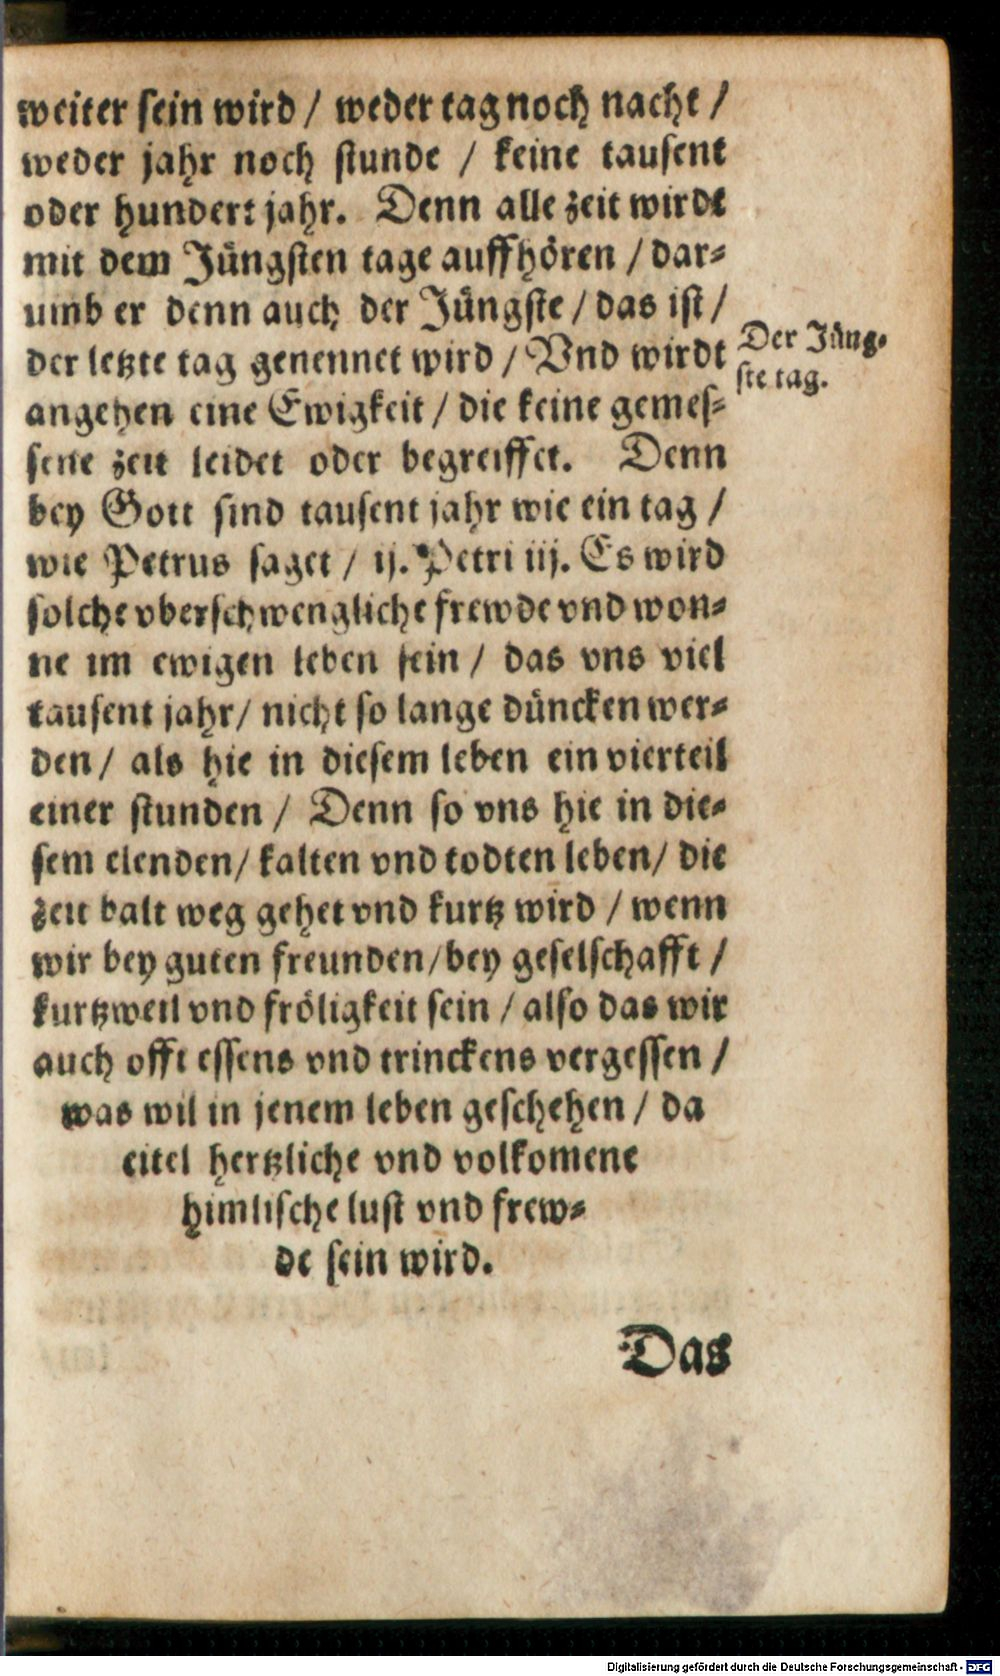 weiter sein wird / weder tag noch nacht /
weder jahr noch stunde / keine tausent
oder hundert jahr. Denn alle zeit wirdt
mit dem Jüngsten tage auffhören / dar-
umb er denn auch der Jüngste / das ist /
der letzte tag genennet wird / Vnd wirdt
Der Jüng-
ste tag.
angehen eine Ewigkeit / die keine gemes-
sene zeit leidet oder begreiffet. Denn
bey Gott sind tausent jahr wie ein tag /
wie Petrus saget / ij. Petri iij. Es wird
solche vberschwengliche frewde vnd won-
ne im ewigen leben sein / das vns viel
tausent jahr / nicht so lange düncken wer-
den / als hie in diesem leben ein vierteil
einer stunden / Denn so vns hie in die-
sem elenden / kalten vnd todten leben / die
zeit balt weg gehet vnd kurtz wird / wenn
wir bey guten freunden / bey geselschafft /
kurtzweil vnd fröligkeit sein / also das wir
auch offt essens vnd trinckens vergessen /
was wil in jenem leben geschehen / da
eitel hertzliche vnd volkomene
himlische lust vnd frew-
de sein wird.
Das
Digitalisierung gefördert durch die Deutsche Forschungsgemeinschaft - DFG